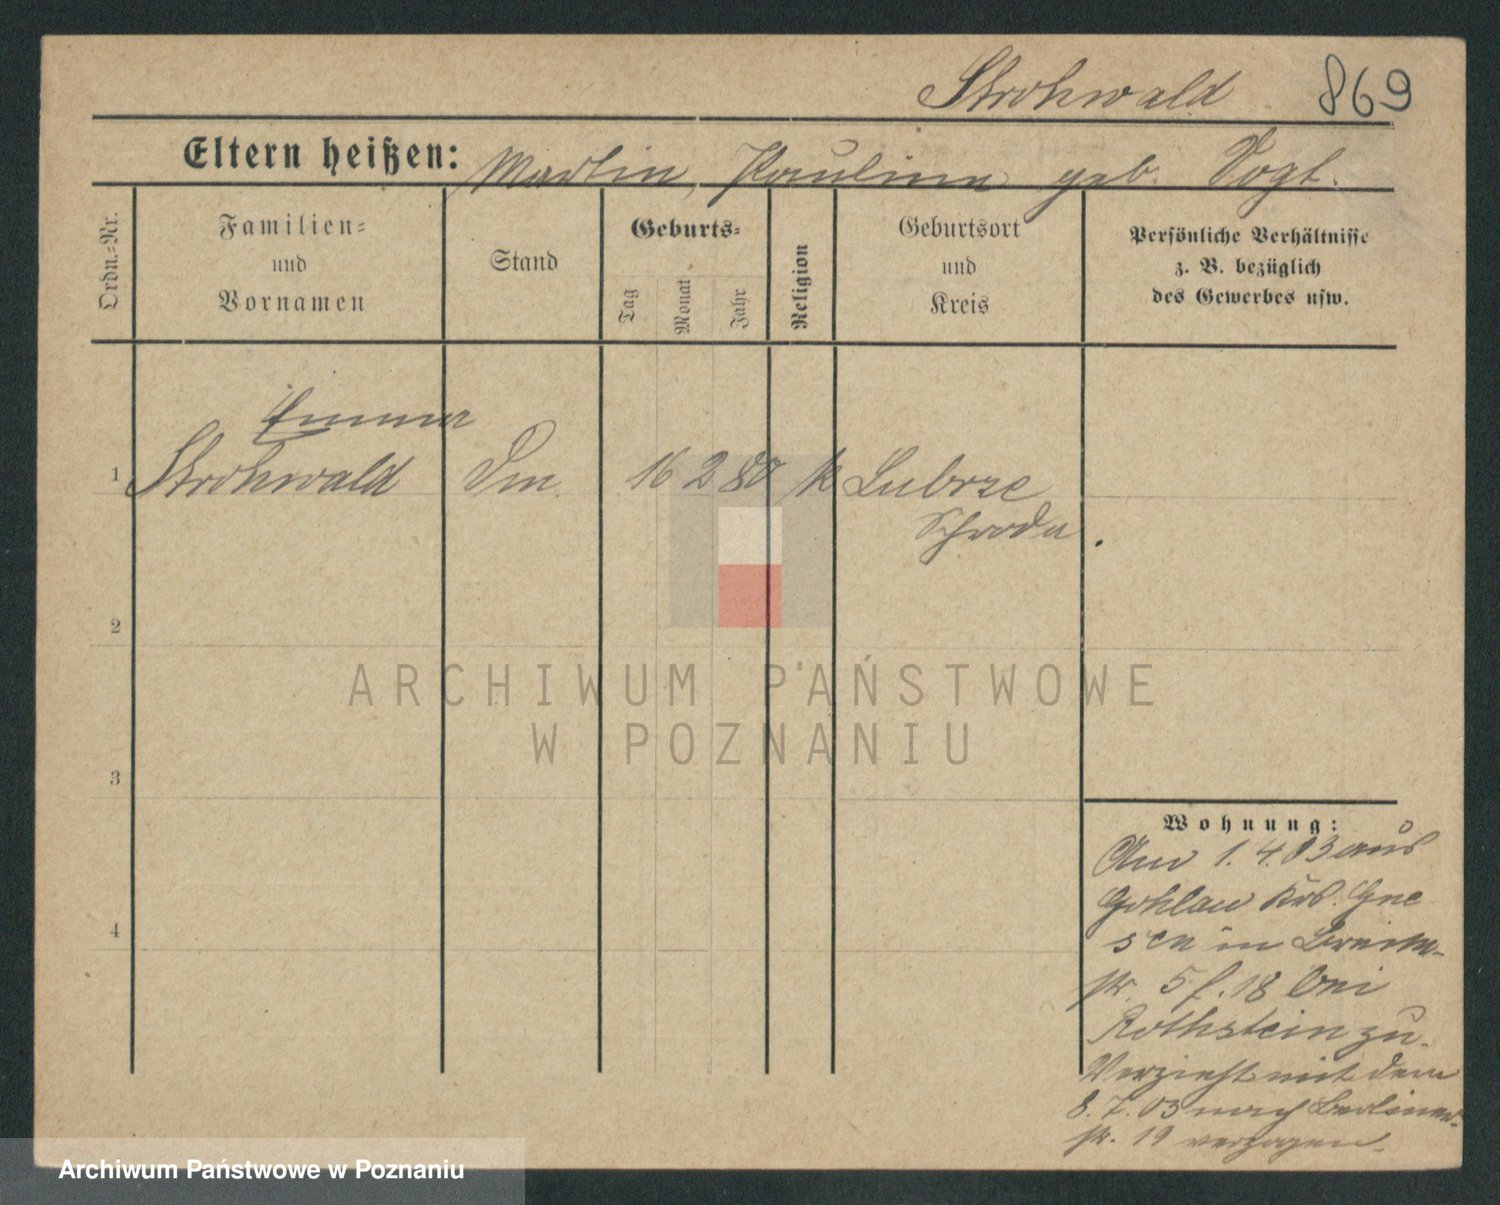 Strohwald 869
Eltern heißen: Martin, Pauline geb. Vogt.
Ordn.-Nr.
Familien-
und
Vornamen
Stand
Geburts-
Tag
Monat
Jahr
Religion
Geburtsort
und
Kreis
Persönliche Verhältnisse
z. B. bezüglich
des Gewerbes usw.
Emma
1 Strohwald Dm. 16 2 80 k Lubrze
Schroda.
2
3
4
ARCHIWUM PAŃSTWOWE
W POZNANIU
Wohnung:
Am 1.4.03 aus
Gohlau Krs. Gne
sen in
str. 5 f. 18 bei
Rothstein zu.
Verzieht mit dem
8.7.03 nach Berliner-
str. 19 verzogen.
Archiwum Państwowe w Poznaniu